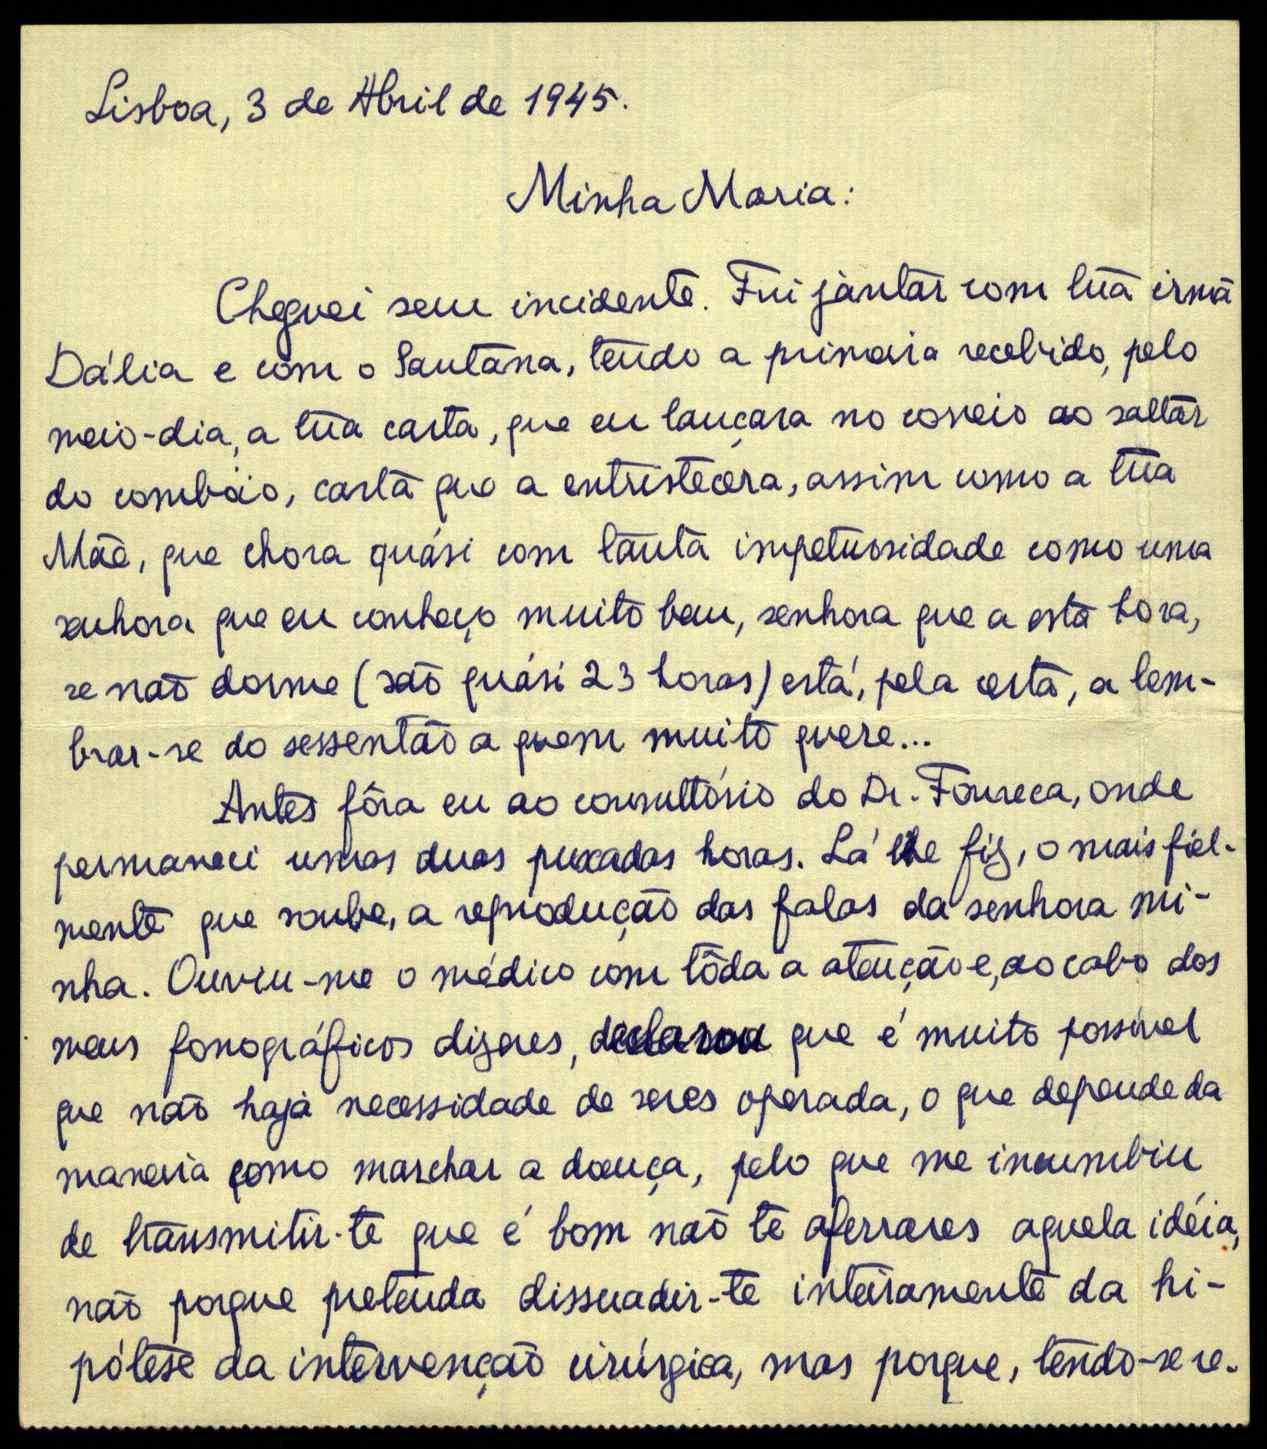 Lisboa, 3 de Abril de 1945.
Minha Maria:
Cheguei sem incidente. Fui jantar com tua irmã
Dália e com o Santana, tendo a primeira recebido, pelo
meio-dia, a tua carta, que eu lançara no correio ao saltar
do combóio, carta que a entristecera, assim como a tua
Mãe, que chora quási com tanta impetuosidade como uma
senhora que eu conheço muito bem, senhora que a esta hora,
se não dorme (são quási 23 horas) está, pela certa, a lem-
brar-se do sessentão a quem muito quere...
Antes fôra eu ao consultório do Dr. Fonseca, onde
permaneci umas duas puxadas horas. Lá lhe fiz, o mais fiel-
mente que soube, a reprodução das falas da senhora mi-
nha. Ouviu-me o médico com tôda a atenção e, ao cabo dos
meus fonográficos dizeres, declarou que é muito possível
que não haja necessidade de seres operada, o que depende da
maneira como marchar a doença, pelo que me incumbiu
de transmitir-te que é bom não te aferrares aquela idéia,
não porque pretenda dissuadir-te inteiramente da hi-
pótese da intervenção cirúrgica, mas porque, tendo-se re-